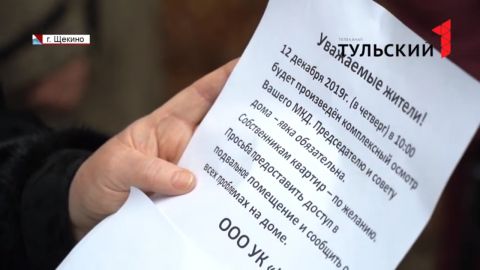 г. Щекино
ТЕЛЕКАНАЛ
ТУЛЬСКИЙ 1
Уважаемые жители!
12 декабря 2019г. (в четверг) в 10:00
будет произведён комплексный осмотр
Вашего МКД. Председателю и совету
дома – явка обязательна.
Собственникам квартир – по желанию.
Просьба предоставить доступ в
подвальное помещение и сообщить о
всех проблемах на доме.
ООО УК «